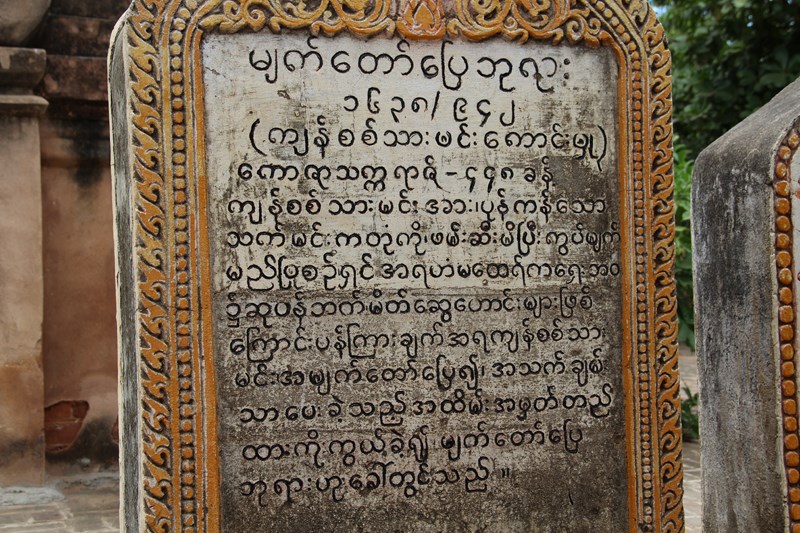 မျက်တော်ပြေဘုရား
၁၆၃၈/၉၄၂
(ကျန်စစ်သားမင်းကောင်းမှု)
ကောဇာသက္ကရာဇ်-၄၄၈ ခုန်
ကျန်စစ်သားမင်းအား၊ပုန်ကန်သော
သက်မင်းကတုကို၊ဖမ်းဆီးမိပြီးကွပ်မျက်
မည်ပြုစဉ်ရှင်အရဟံမထေရ်ကရှေးဘဝ
၌ဆုပန်ဘက်မိတ်ဆွေဟောင်းများဖြစ်
ကြောင်းပန်ကြားချက်အရကျန်စစ်သား
မင်းအမျက်တော်ပြေ၍၊အသက်ချမ်း
သာပေးခဲ့သည့်အထိမ်းအမှတ်တည်
ထားကိုးကွယ်ခဲ့၍မျက်တော်ပြေ
ဘုရားဟုခေါ်တွင်သည်။